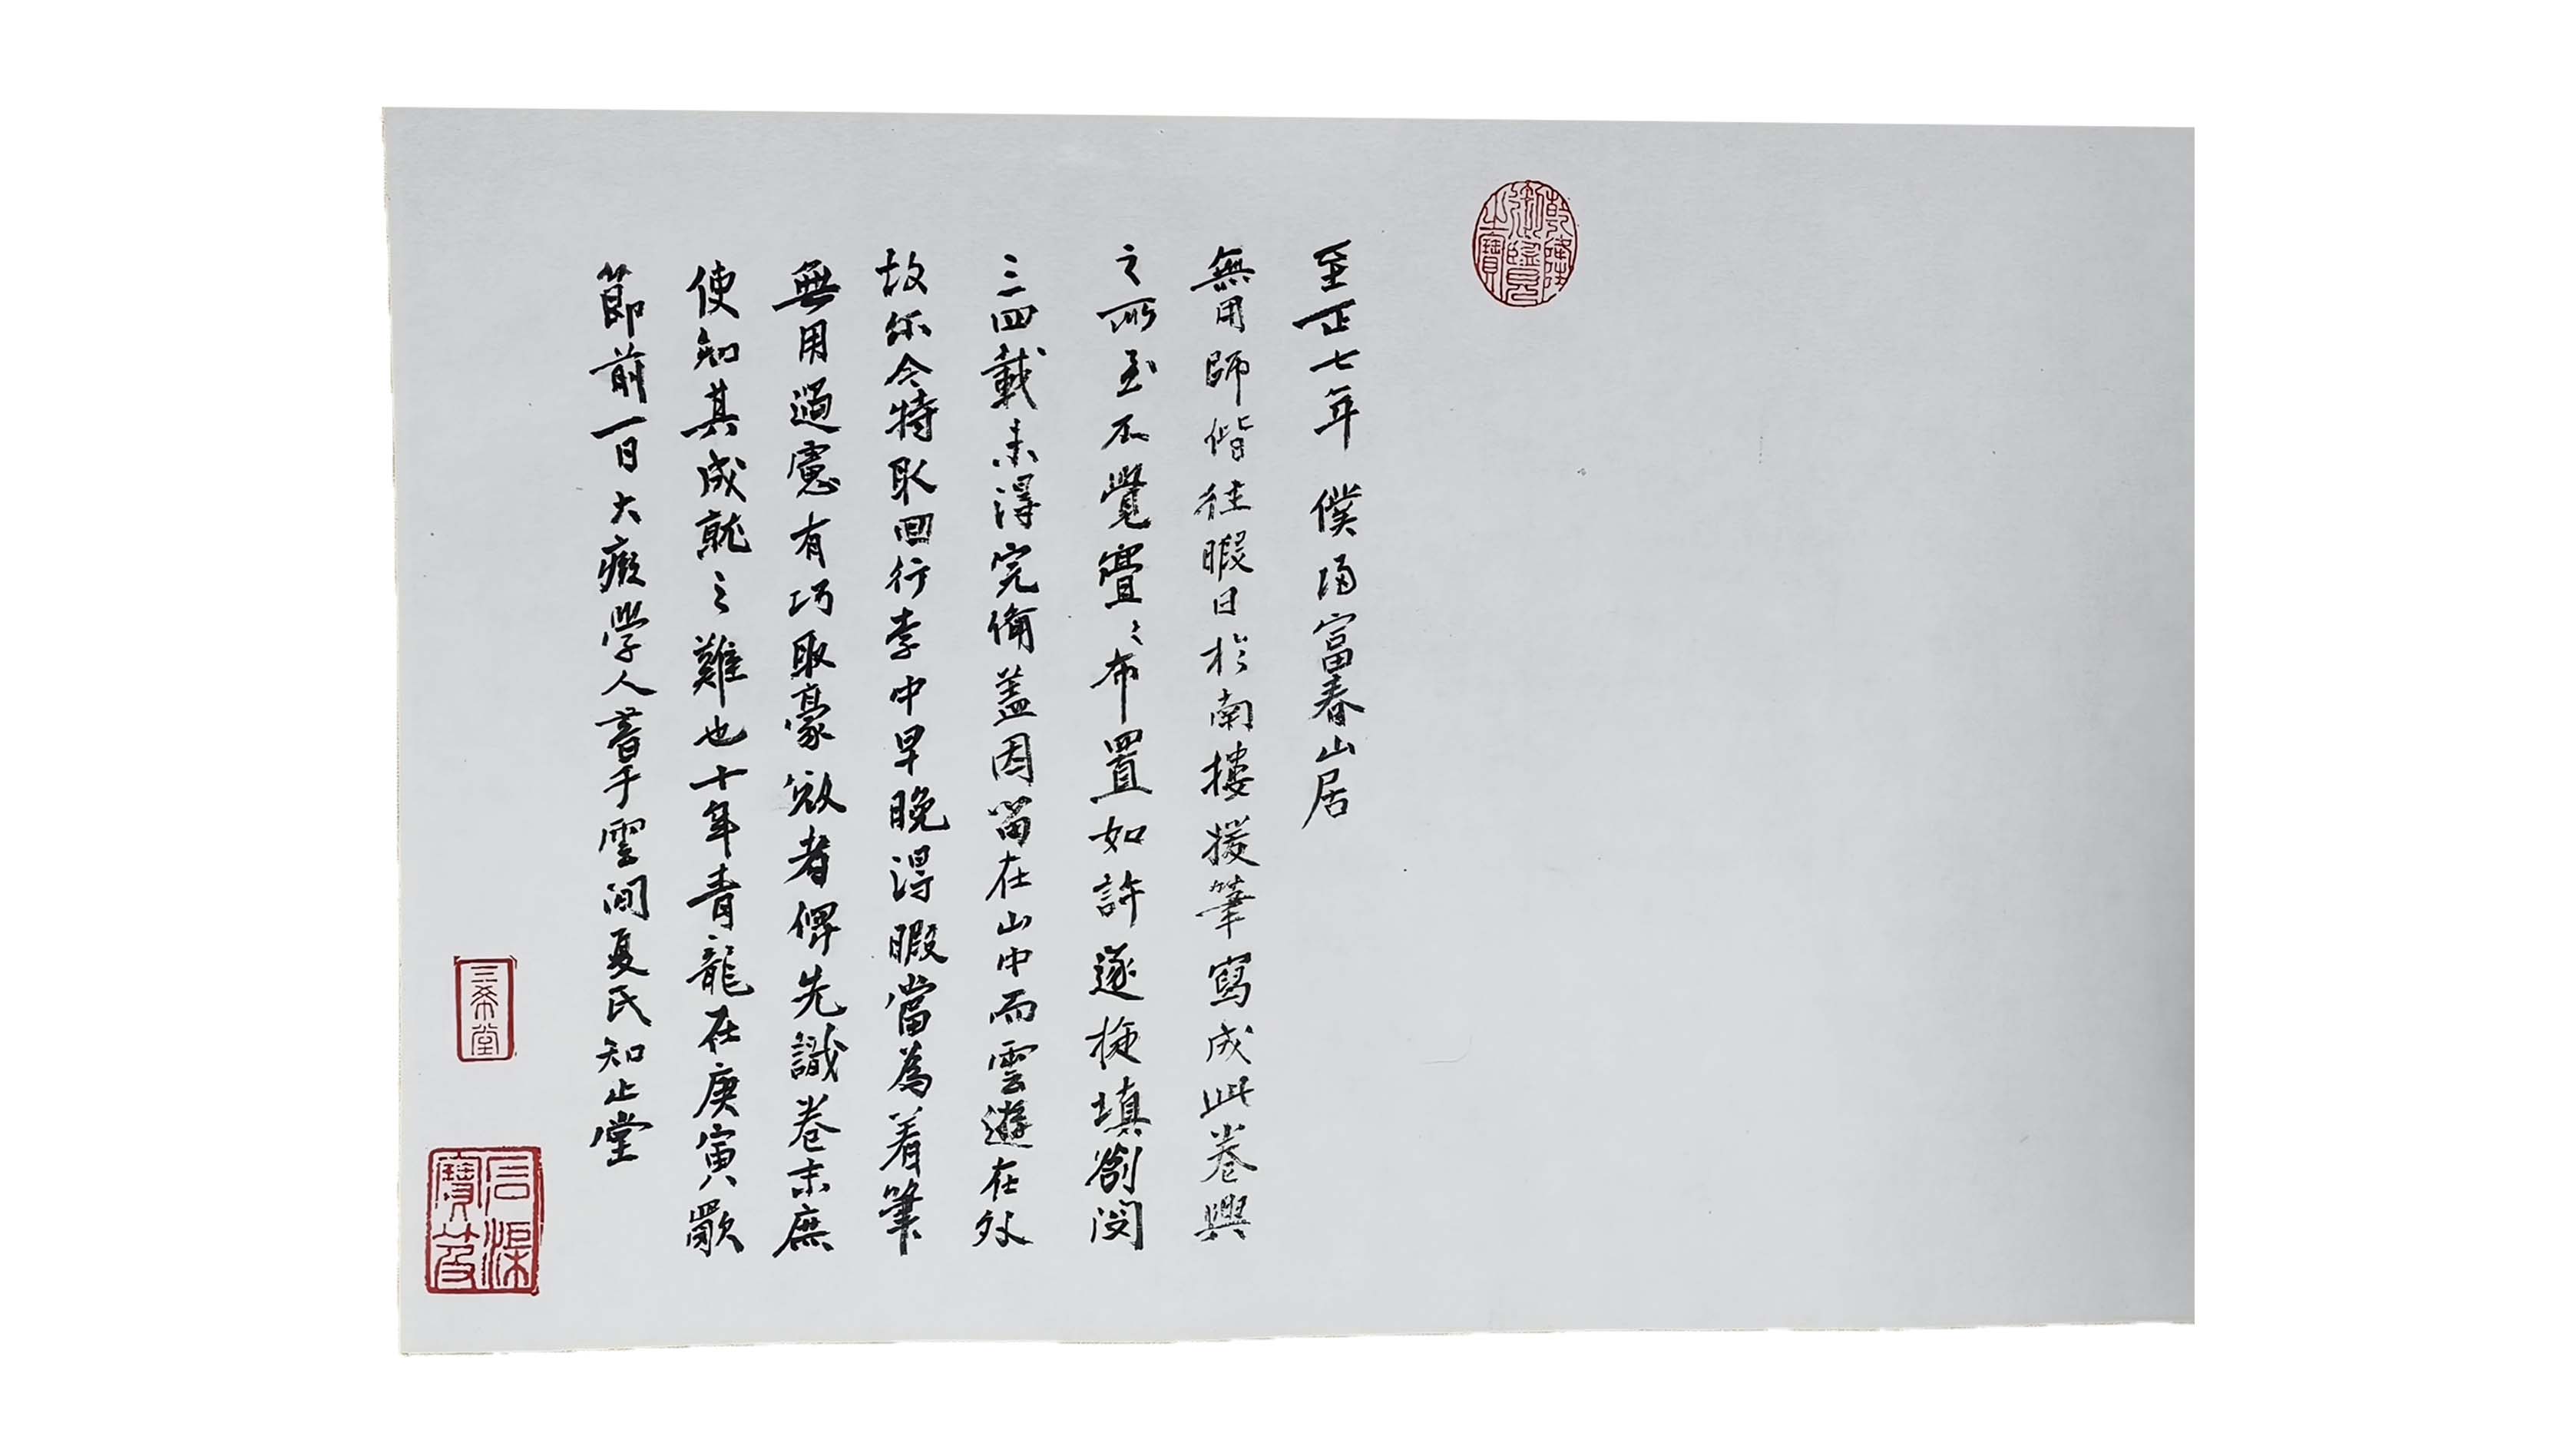 乾隆御覽之寶
至正七年僕歸富春山居
無用師偕往暇日於南樓援筆寫成此卷興
之所至不覺亹〻布置如許逐旋填劄閱
三四載未得完備蓋因留在山中而雲遊在外
故尔今特取回行李中早晚得暇當為着筆
無用過慮有巧取豪敚者俾先識卷末庶
使知其成就之難也十年青龍在庚寅歜
節前一日大癡學人書于雲間夏氏知止堂
三希堂
石渠寶笈